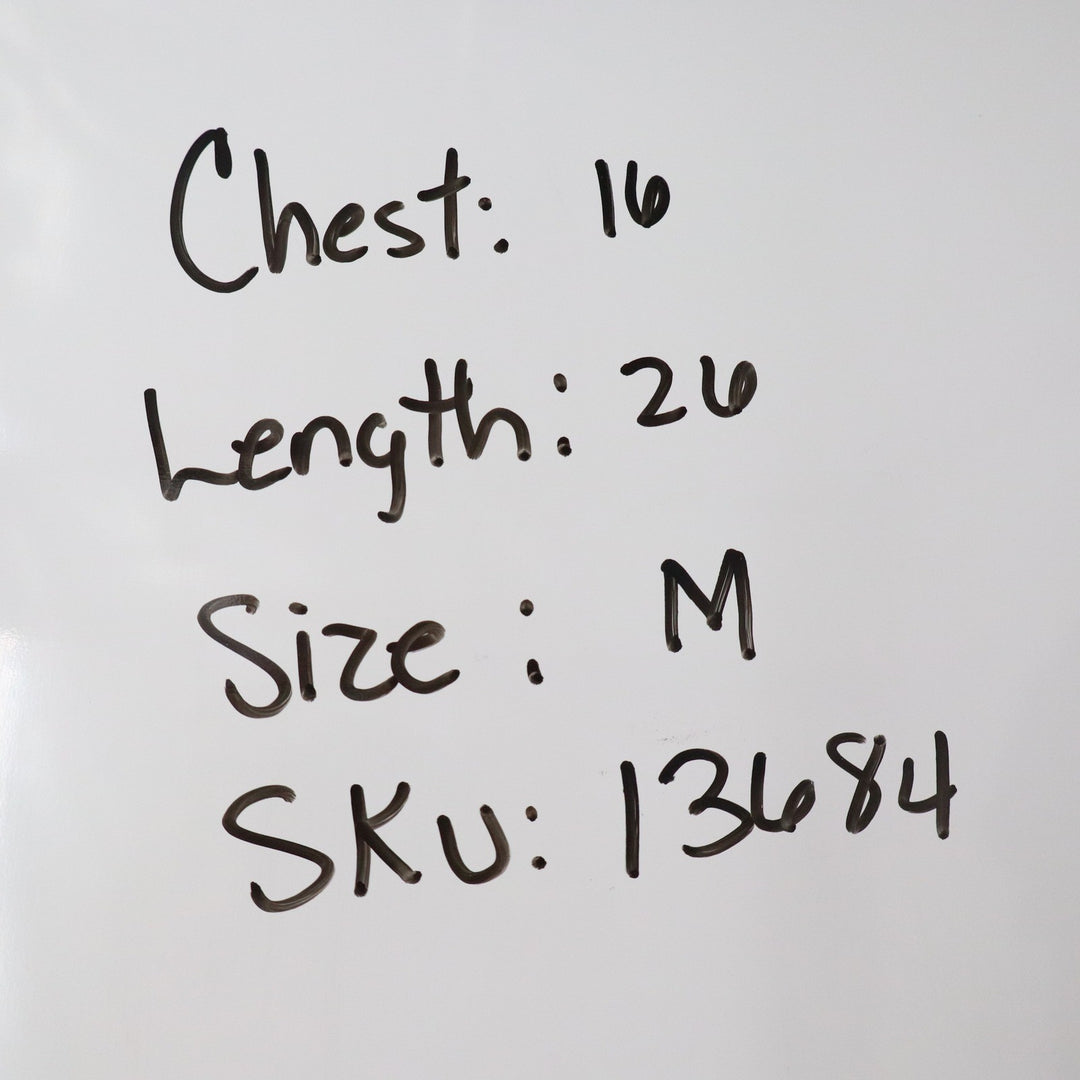 Chest: 16
Length: 26
Size: M
SKU: 13684